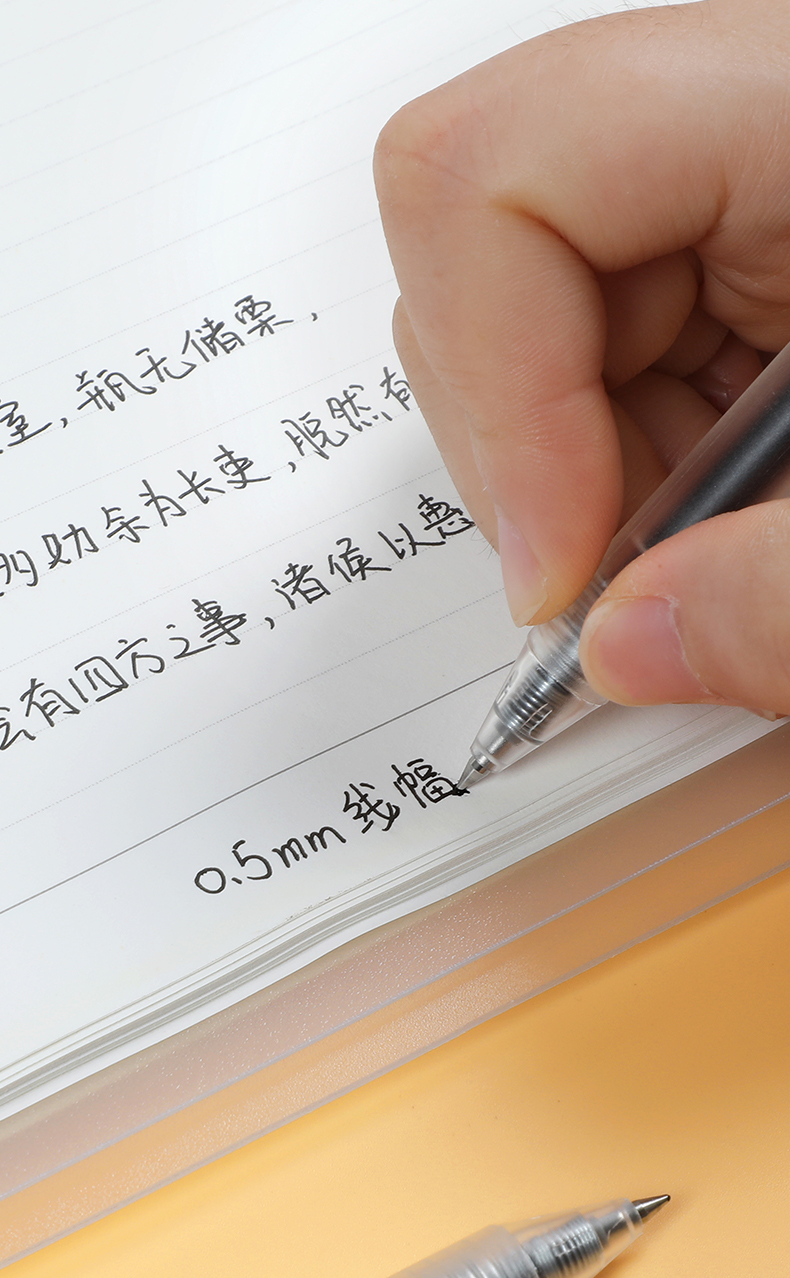 室，瓶无储粟，
多劝余为长吏，脱然有
会有四方之事，诸侯以惠
0.5mm线幅